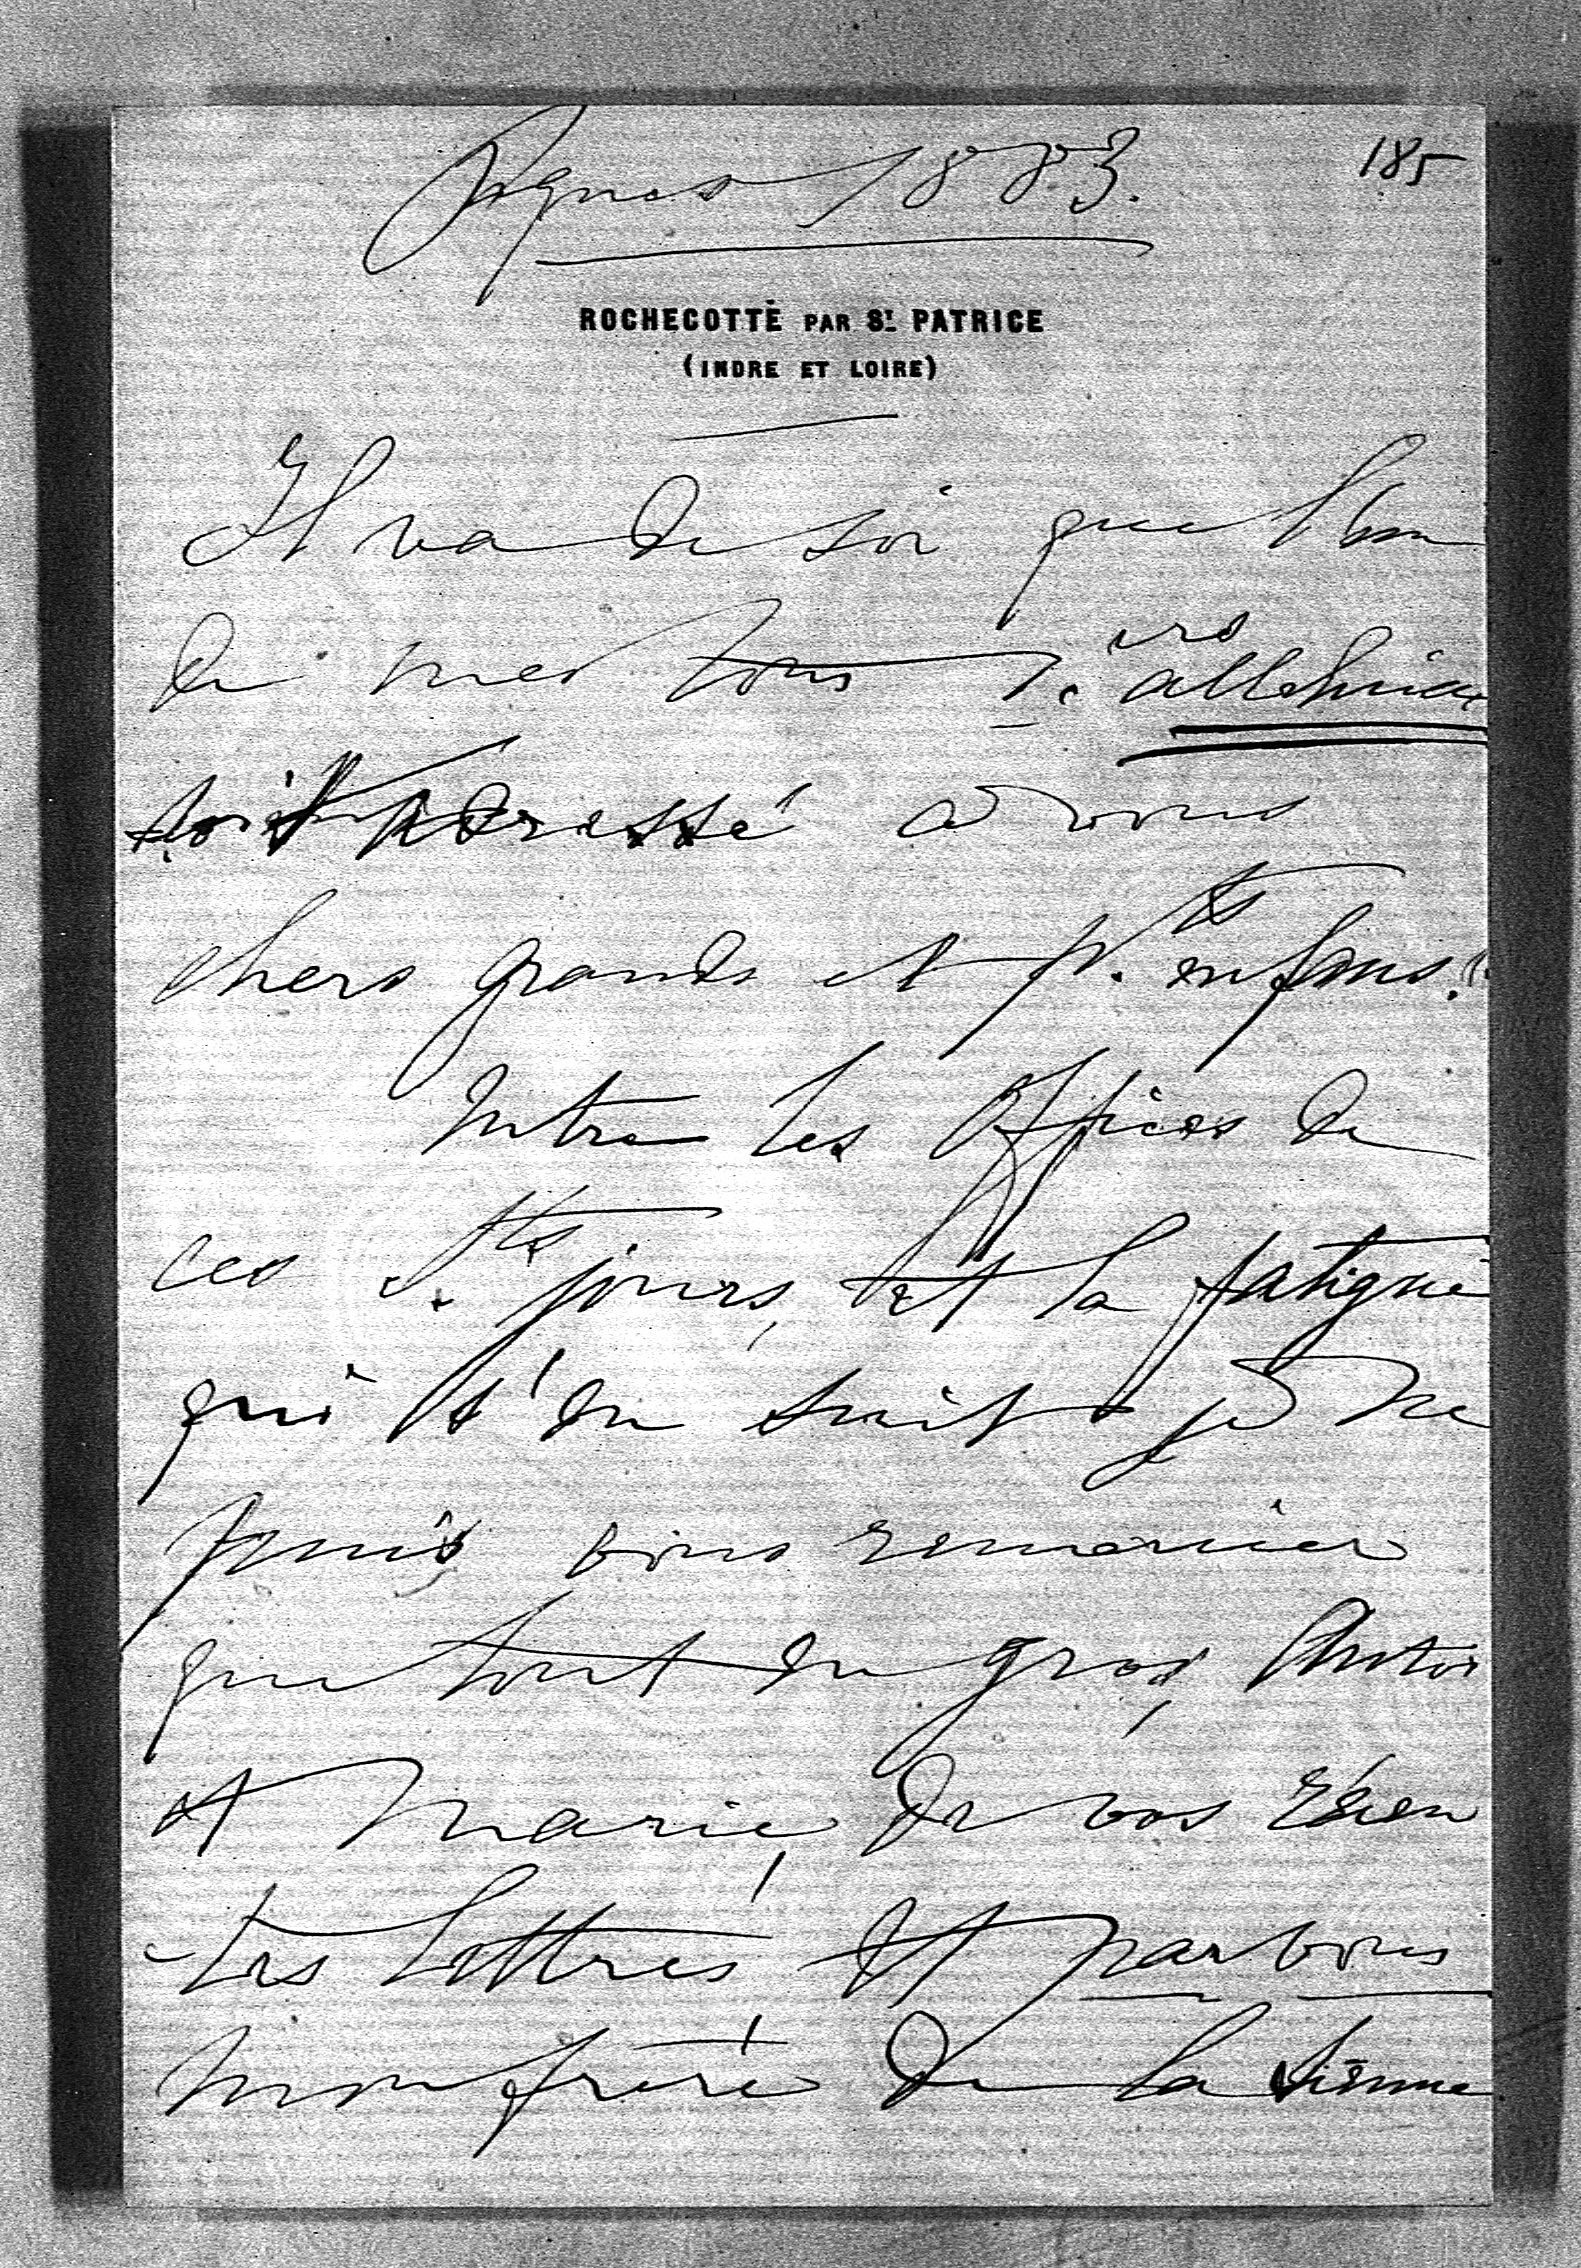 Pâques 1883.
185
ROCHECOTTE PAR St. PATRICE
(INDRE ET LOIRE)
Il va de soi que l'un
de mes tous 1.ers alleluia
soit adressé à vous
chers grands et p.ts enfans!
Entre les offices de
ces S.ts jours, et la fatigue
qui s'en suit je ne
puis vous remercier
que tout en gros, Antoi
et Marie, de vos récen
tes lettres et par vous
mon frère de la sienne